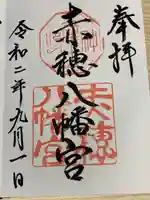 奉拝
赤穂八幡宮
令和二年九月一日
赤穂
八幡宮